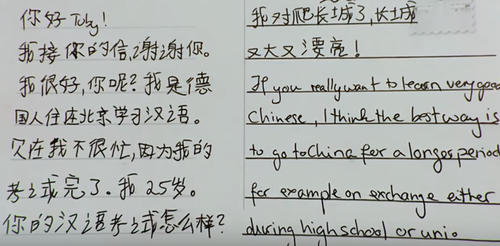 你好 Toby!
我接你的信,谢谢你。
我很好,你呢?我是德
国人住在北京学习汉语。
欠在我不很忙,因为我的
考试完了。我 25岁。
你的汉语考试怎么样?
我对爬长城了,长城
又大又漂亮!
If you really want to learn very good
Chinese, I think the best way is
to go to China for a longer period
for example on exchange either
during high school or uni.